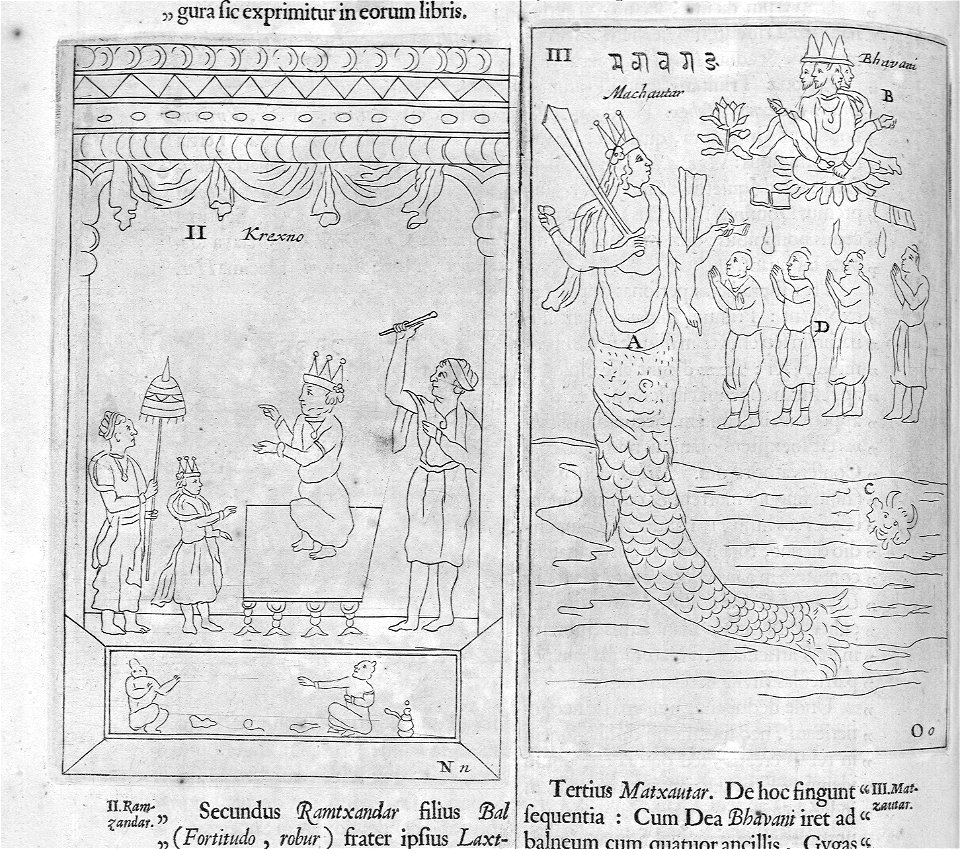 „gura ſic exprimitur in eorum libris.
II Krexno
N n
II. Ram-
zandar.
„ Secundus Ramtxandar filius Bal
„ (Fortitudo, robur) frater ipſius Laxt-
III
Machautar
Bhavani
B
A
D
C
O o
Tertius Matxautar. De hoc fingunt “
III. Mat-
zautar.
ſequentia : Cum Dea Bhavani iret ad “
balneum cum quatuor ancillis, Gygas “